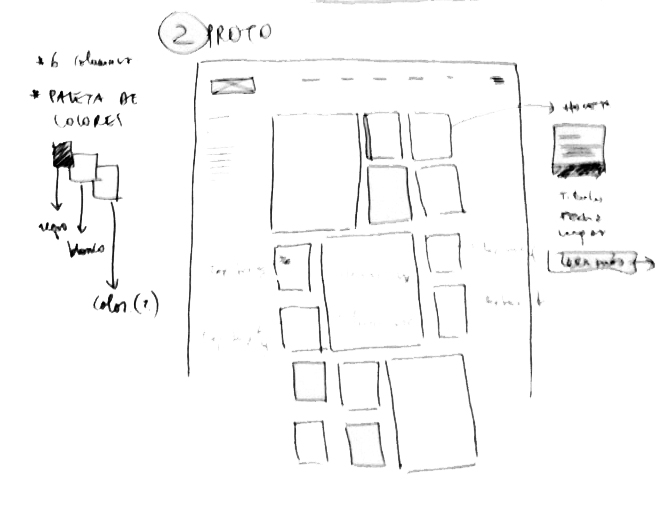 2 PROTO
* 6 columnas
* PALETA DE
COLORES
negro
blanco
color (?)
HOVER
Titulo
Fecha
Lugar
Leer más